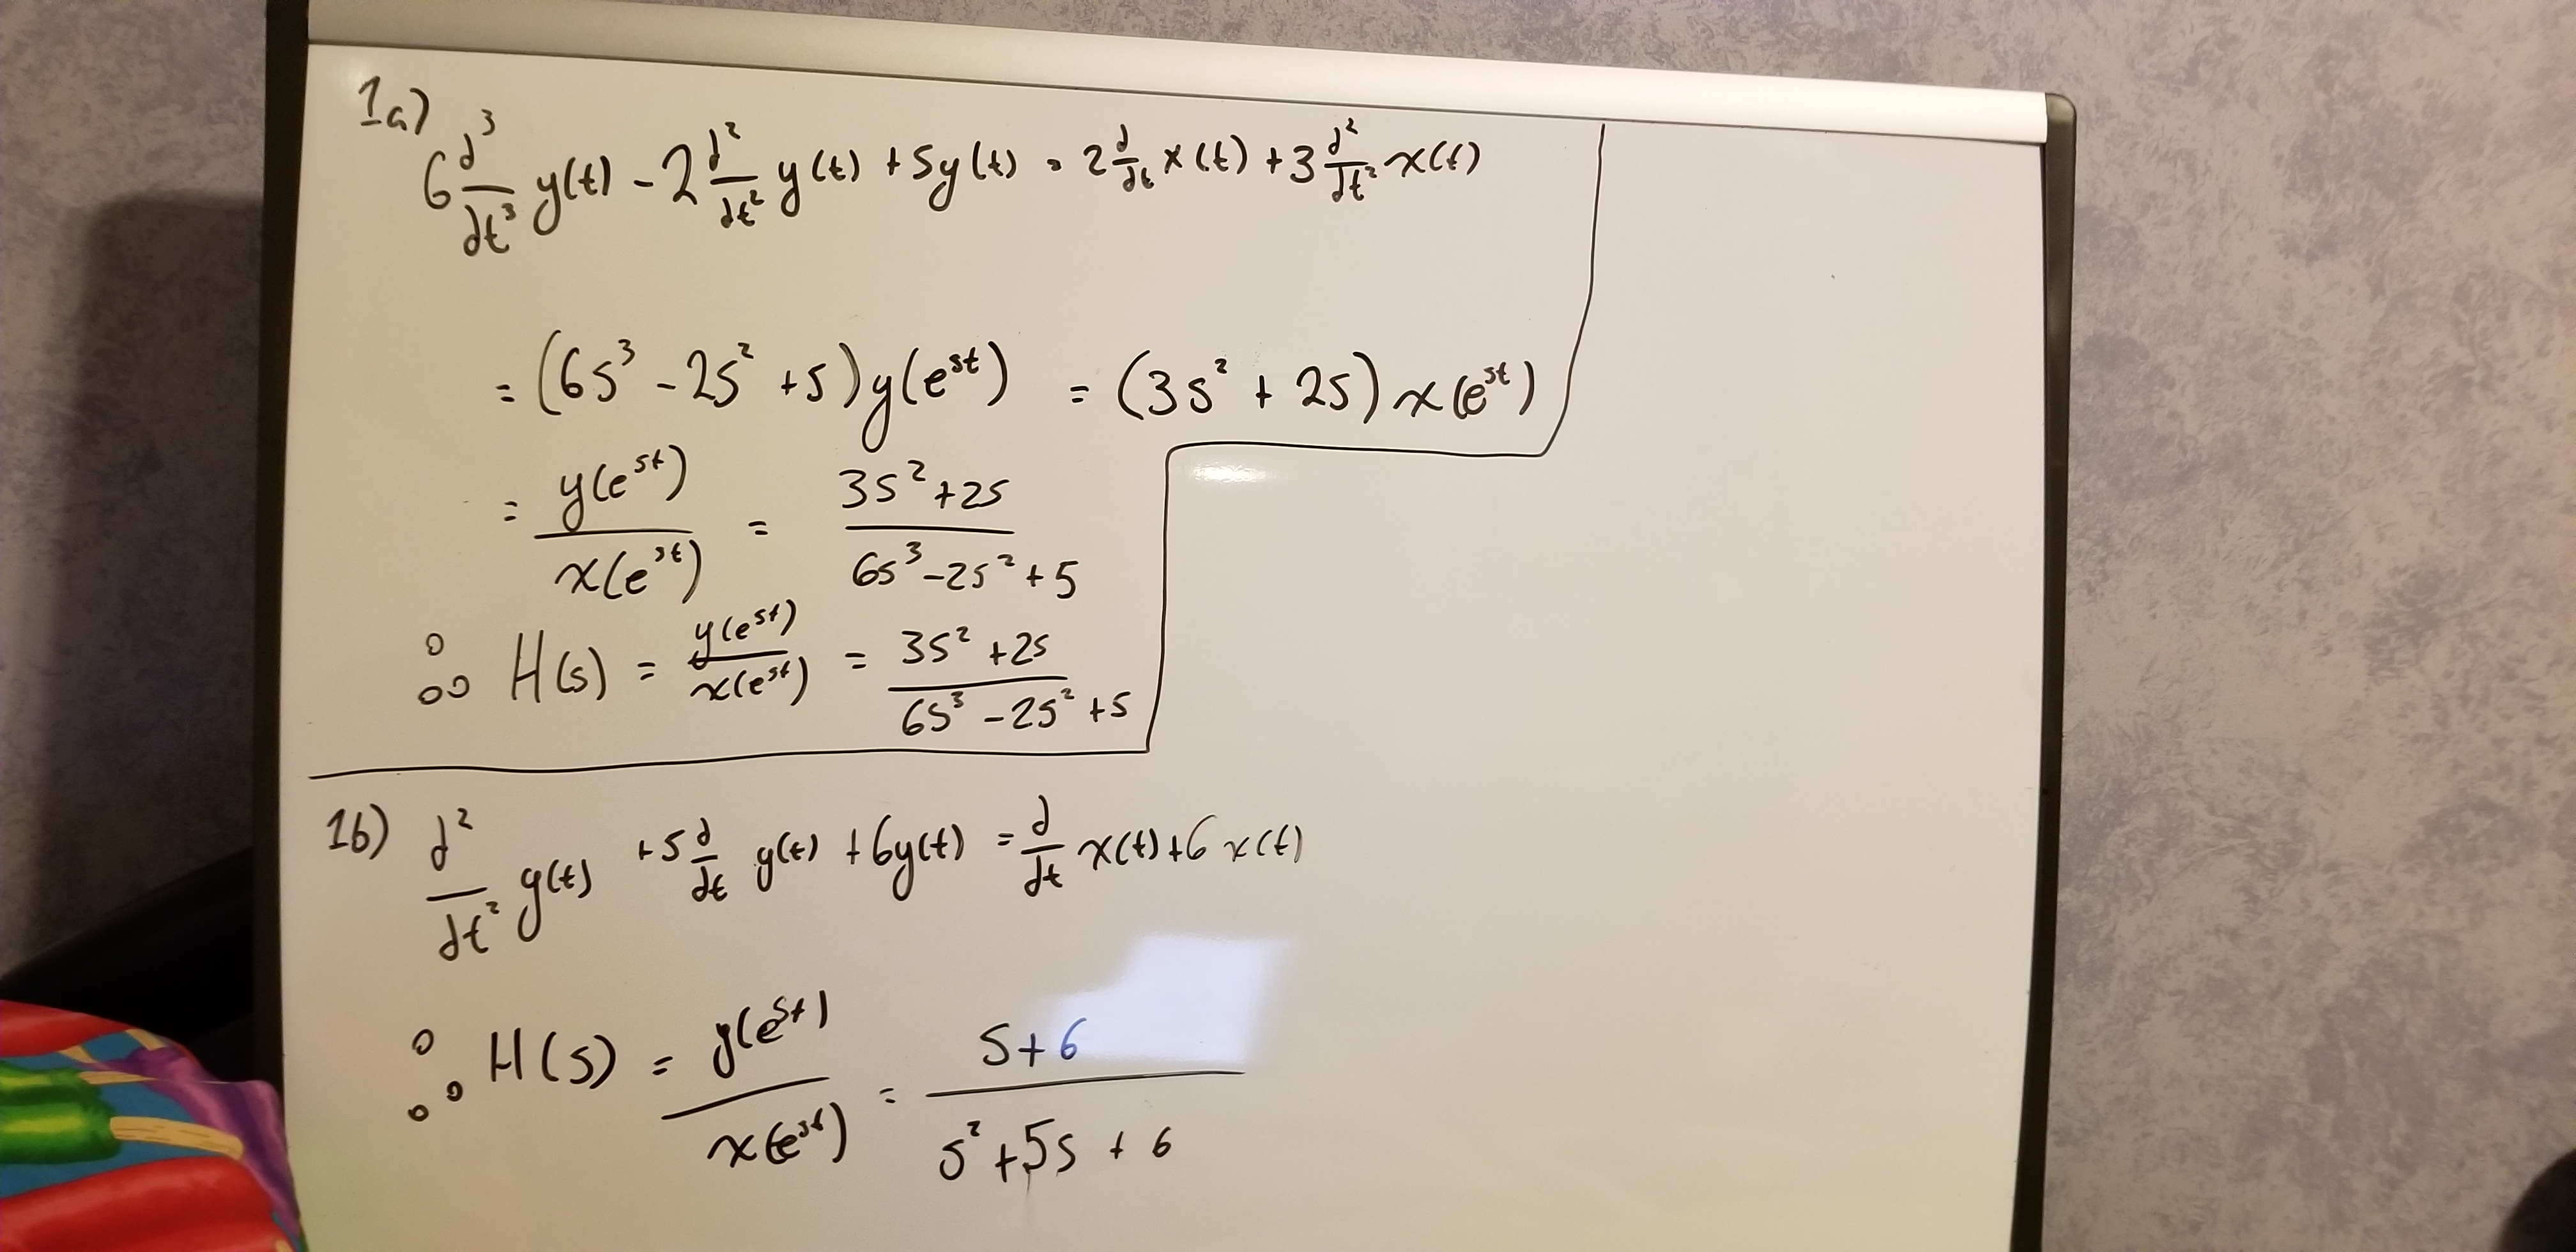 1a)
6 d³/dt³ y(t) - 2 d²/dt² y(t) + 5y(t) = 2 d/dt x(t) + 3 d²/dt² x(t)
= (6s³ - 2s² + 5) y(e^st) = (3s² + 2s) x(e^st)
= y(e^st)/x(e^st) = (3s² + 2s)/(6s³ - 2s² + 5)
∴ H(s) = y(e^st)/x(e^st) = (3s² + 2s)/(6s³ - 2s² + 5)
1b) d²/dt² y(t) + 5 d/dt y(t) + 6y(t) = d/dt x(t) + 6 x(t)
∴ H(s) = y(e^st)/x(e^st) = (s + 6)/(s² + 5s + 6)